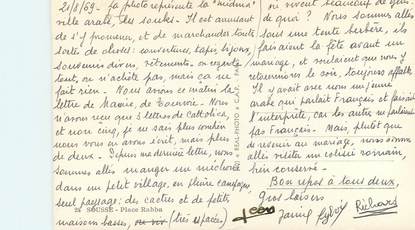 21/8/69. La photo représente la "médina"
ville arabe, des souks. Il est amusant
de s'y promener, et de marchander toute
sorte de choses: couvertures, tapis, bijoux,
souvenirs divers, vêtements. On regarde
tout, on n'achète pas, mais ça ne
fait rien. Nous avons ce matin la
lettre de Mamie, de
n'avons reçu que 3 lettres de Cattolica,
et non cinq, je ne sais plus combien
nous vous en avons écrit, mais plus
de deux. Depuis ma dernière lettre, nous
sommes allés manger un méchoui
dans un petit village, en pleine campagne,
seul paysage: des cactus et de petites
maisons basses, (très espacées)
24 SOUSSE - Place Rahba
REAL-PHOTO
C.A.P.
où vivent beaucoup de gens
de quoi? Nous sommes allés
sous une tente berbère, ils
faisaient la fête avant un
mariage, et voulaient que nous y
retournions le soir, toujours affables.
Il y avait avec nous un jeune
arabe qui parlait français et faisait
l'interprète, car les autres ne parlaient
pas français. Mais, plutôt que
de revenir au mariage, nous sommes
allés visiter un colisée romain,
bien conservé.
Bon repos à tous deux,
Gros baisers
Jean Janine Sylvie Richard